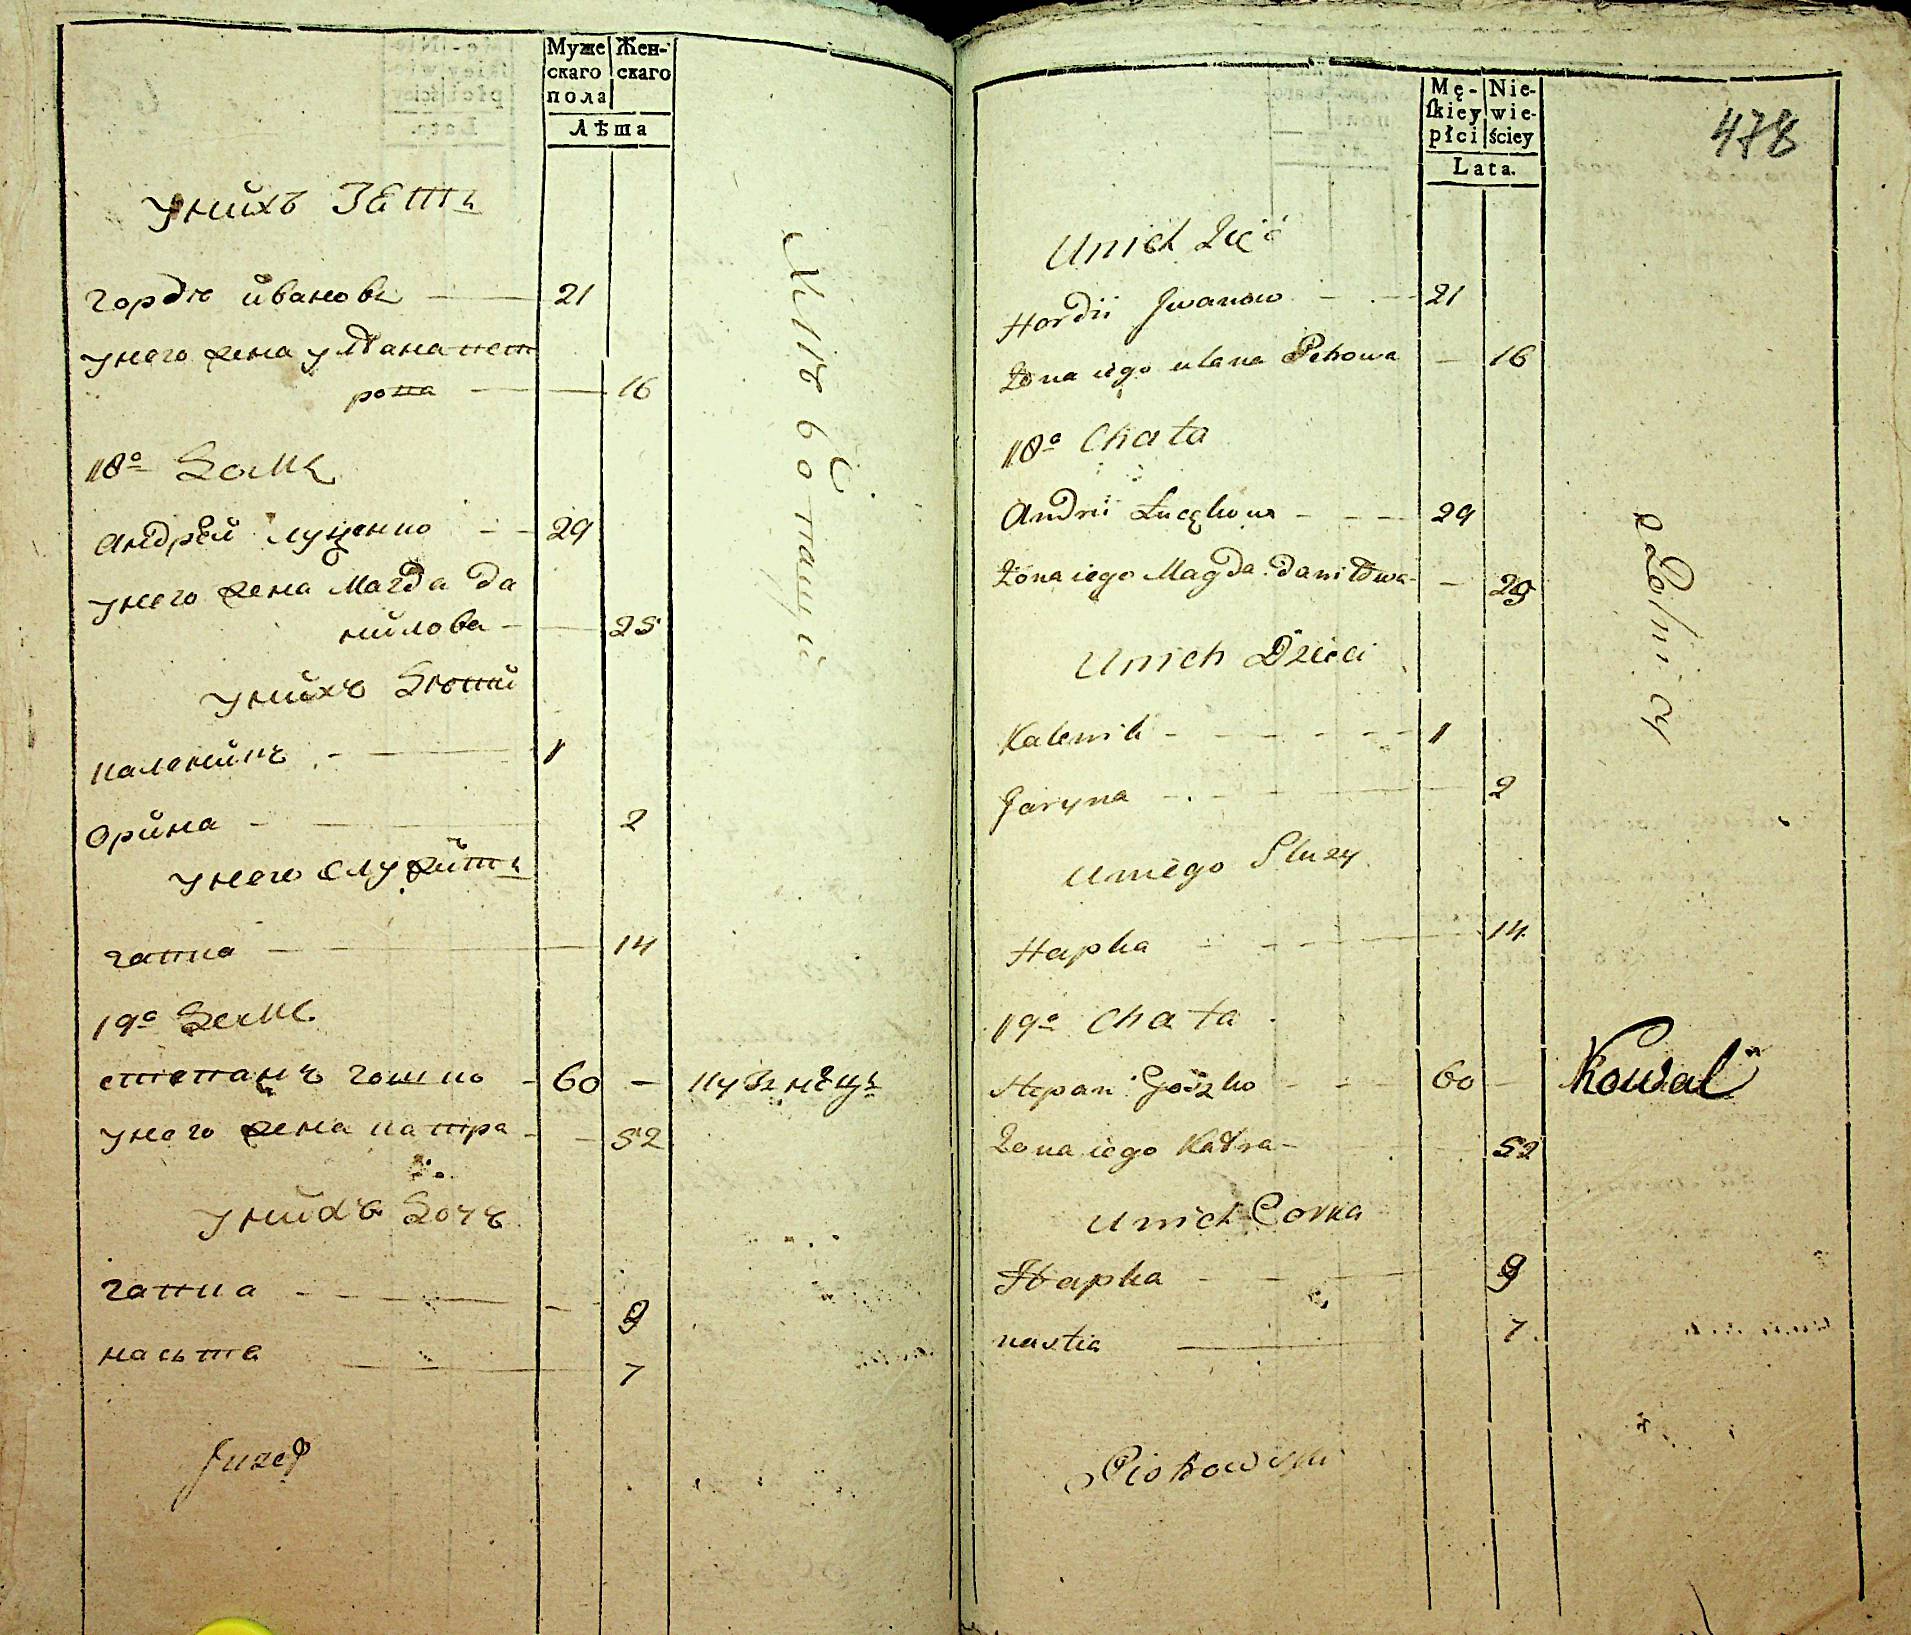 Муже
скаго
пола
Жен-
скаго
Лѣта
унихъ Зать
гордѣ ивановъ 21
унего жена уляна пет
рова 16
18а Домъ
андрей луценко 29
унего жена магда да
нилова 25
унихъ Дѣти
каленикъ 1
орина 2
унего служитъ
гапка 14
19а Домъ
степанъ гошко 60 кузнецъ
унего жена катра 52
унихъ Дочъ
гапка 9
настя 7
Juzef
Mę-
skiey
płci
Nie-
wie-
ściey
Lata.
478
Unich Zięć
Hordii Jwanow 21
Żona iego ulana Petrowa 16
18a Chata
Andrii Łucenko 29
Żona iego Magda daniłowa 25
Unich Dzieci
Kalenik 1
Jaryna 2
Uniego Służy
Hapka 14
19a Chata
Stepan Goszko 60 Kowal
Żona iego Katra 52
Unich Corka
Hapka 9
nastia 7
Piotrowski